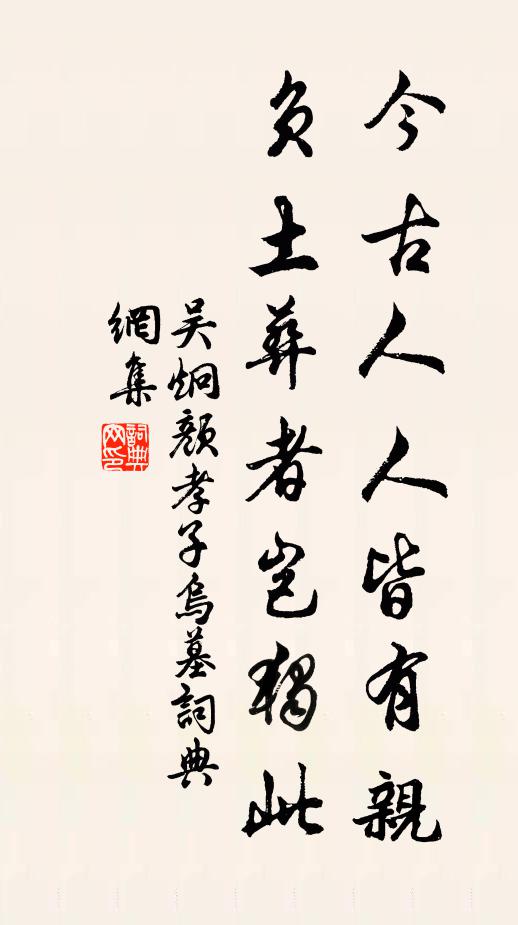 今古人人皆有親
負土葬者豈獨此
吳炯顏孝子烏墓詞典
網集
詞典網印